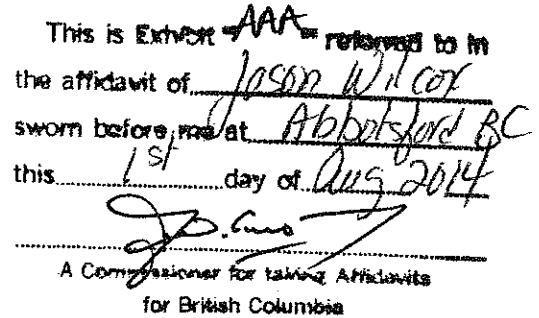 This is Exhibit "AAA" referred to in
the affidavit of Jason Wilcox
sworn before me at Abbotsford BC
this 1st day of Aug 2014
A Commissioner for taking Affidavits
for British Columbia